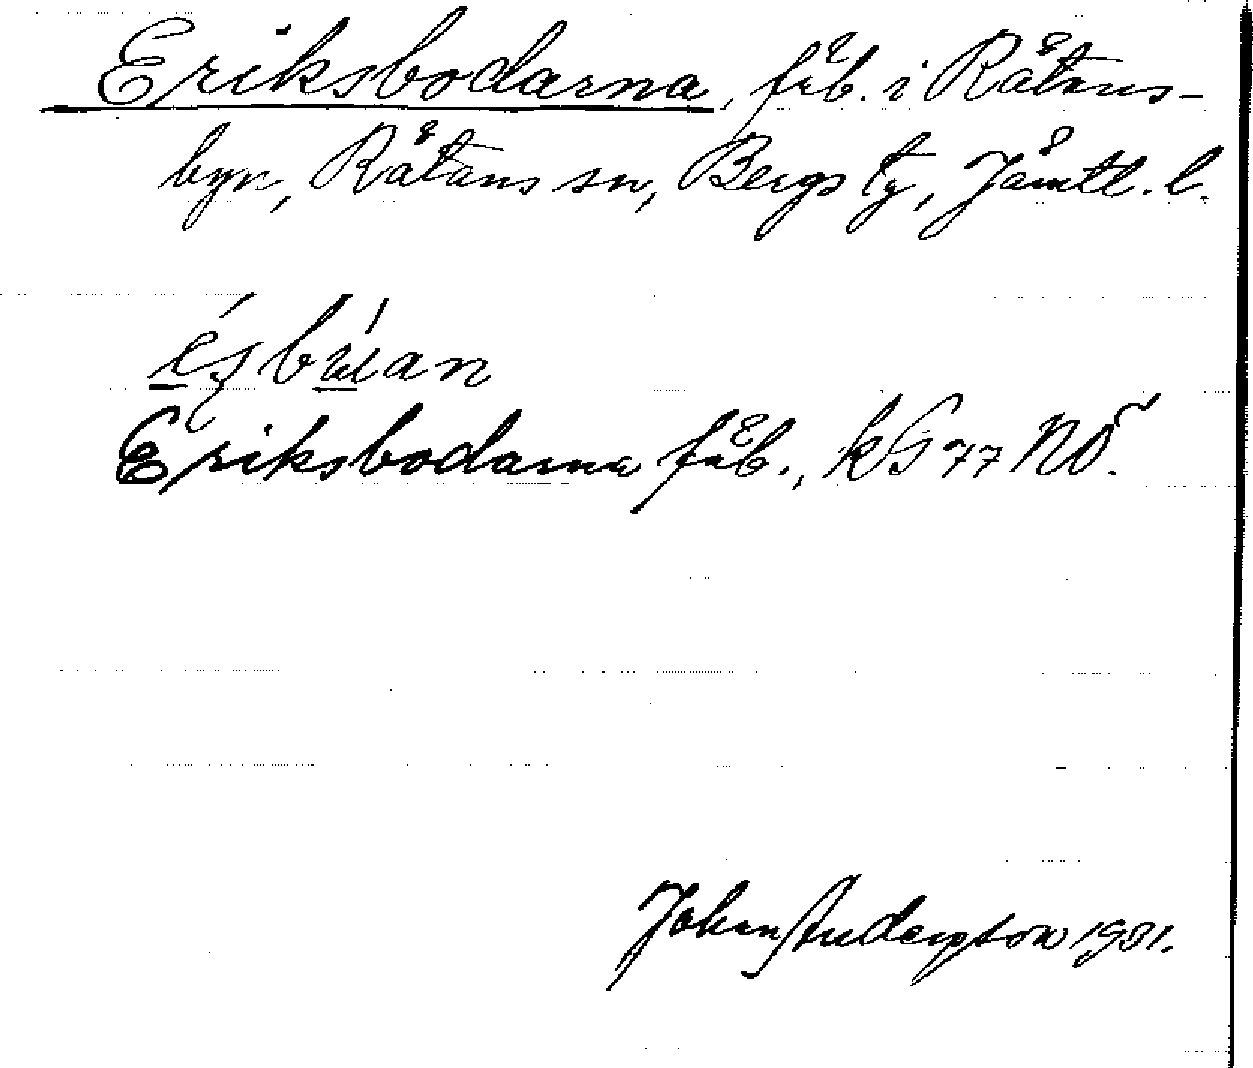 Eriksbodarna, fäb. i Råtans-
byn, Råtans sn, Bergs tg, Jämtl. l.
Eriksbodarna fäb., kG 77 NÖ.
Johan Anderson 1931.